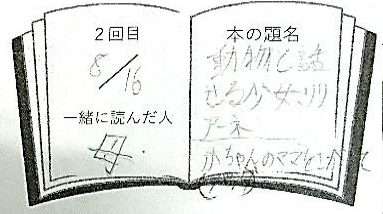 2回目
8/16
一緒に読んだ人
母
本の題名
動物と話
せる少女リリ
アーネ
赤ちゃんのママをさがして